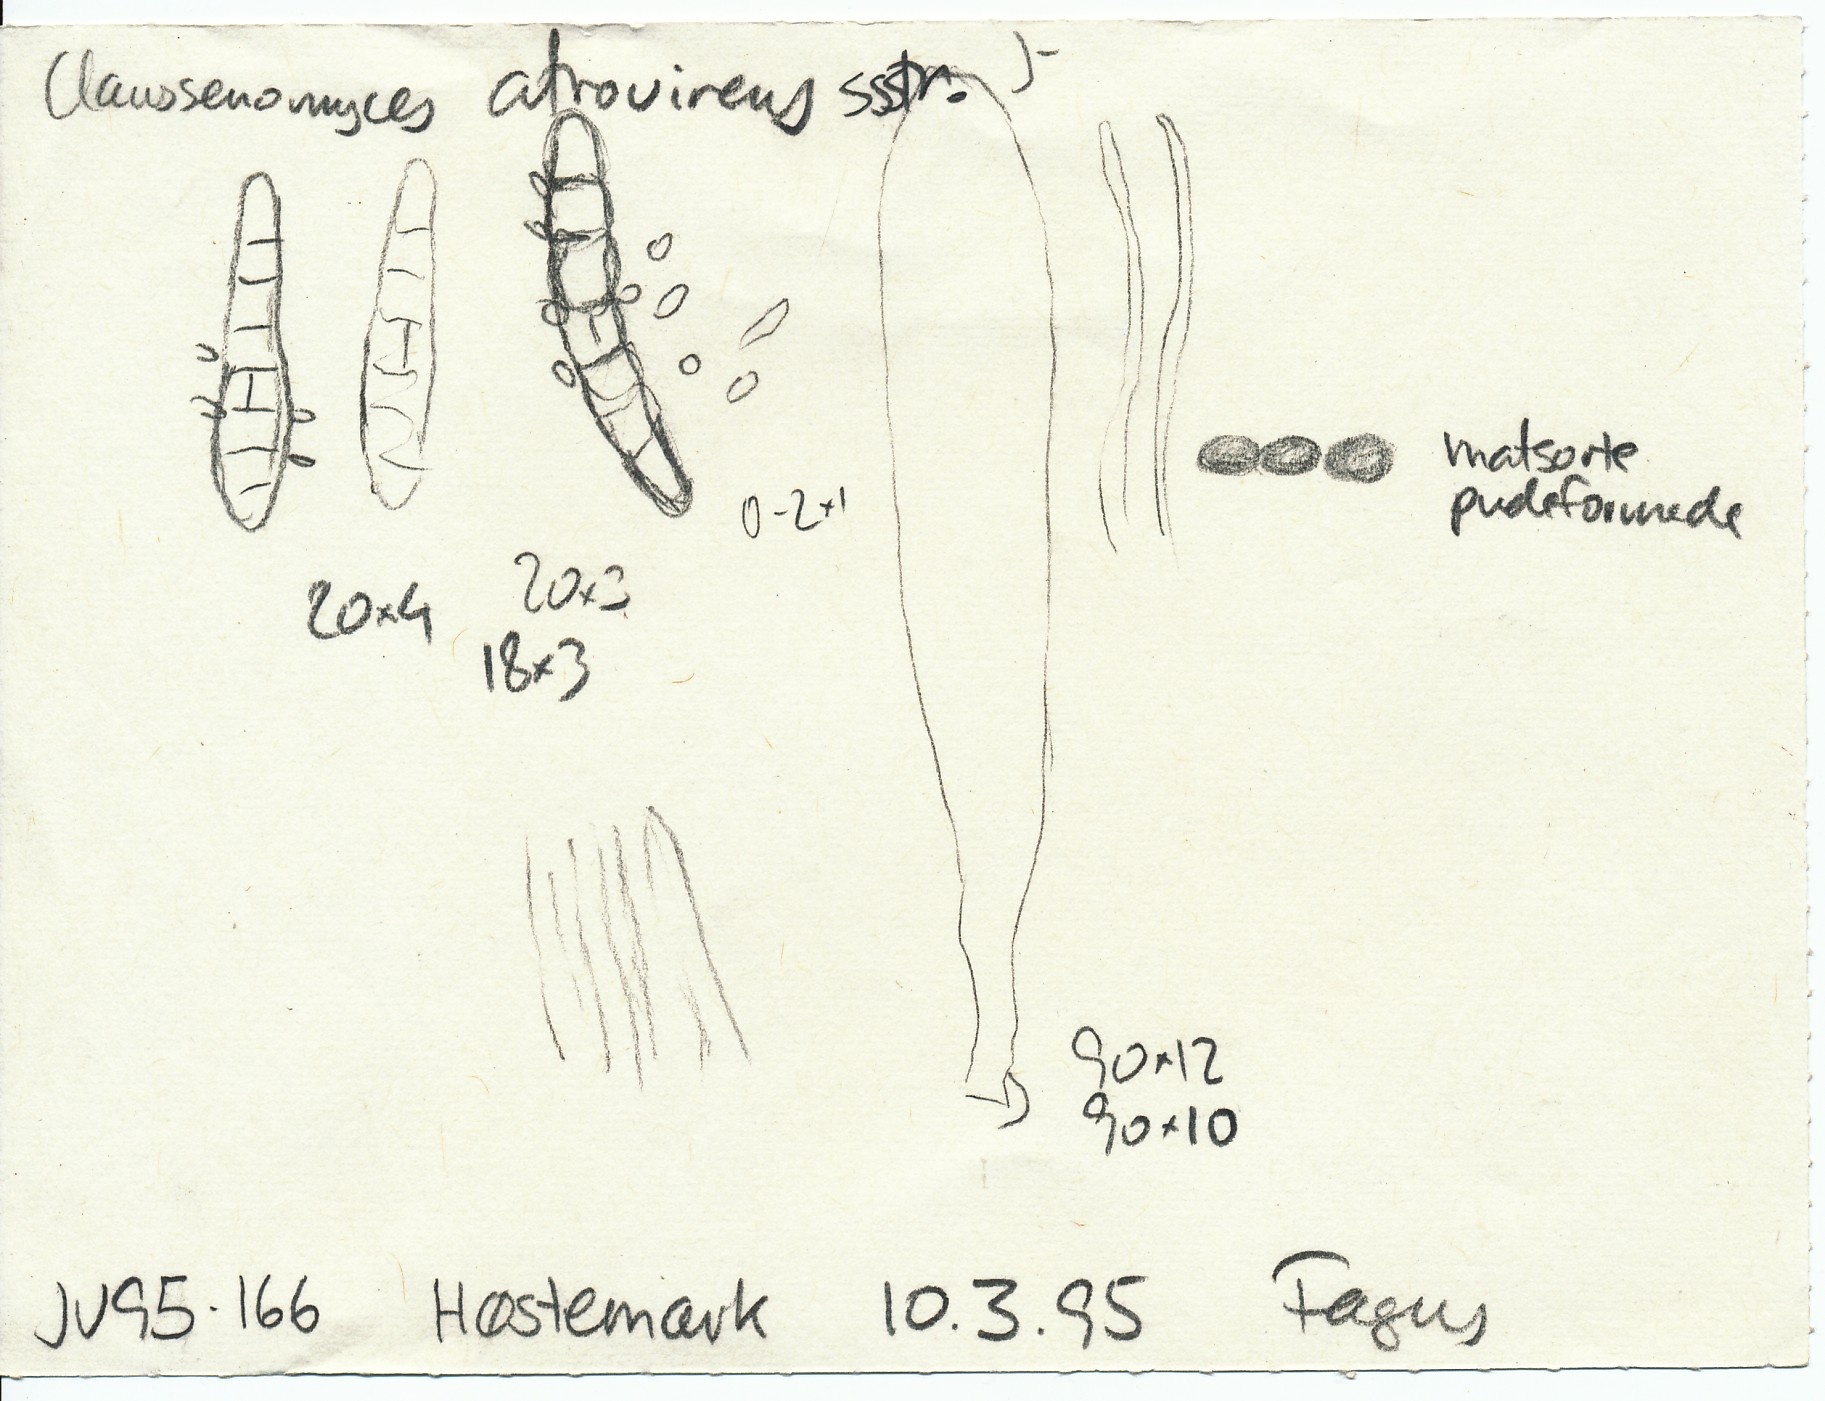 Claussenomyces atrovirens sstr. J-
0-2x1
20x4
20x3
18x3
matsorte
pudeformede
90x12
90x10
JV95-166 Høstemark 10.3.95 Fagus